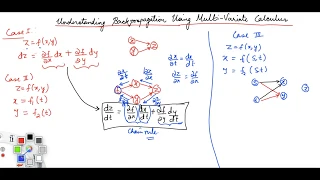 Understanding Backpropagation Using Multi-Variate Calculus
Case I
z = f(x,y)
dz = ∂f/∂x dx + ∂f/∂y dy
Case II
z = f(x,y)
x = f₁(t)
y = f₂(t)
dz/dt = ∂f/∂x dx/dt + ∂f/∂y dy/dt
Chain rule
∂x/∂t = dx/dt
Case III
z = f(x,y)
x = f₁(s,t)
y = f₂(s,t)